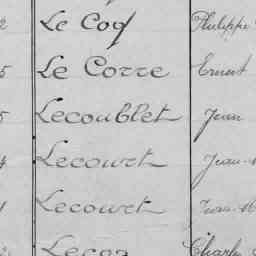 2 Le Coq Philippe
5 Le Corre Ernest
5 Lecoublet Jean
4 Lecourt Jean-M
1 Lecourt Jean-M
Lecoz Charles